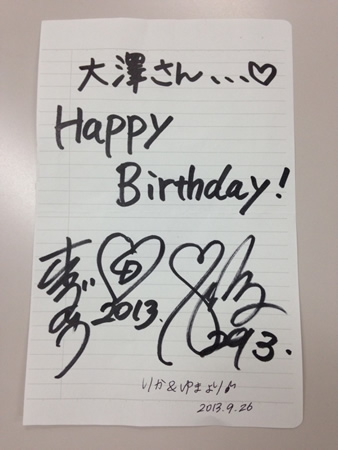 大澤さん、、、♡
Happy
Birthday!
2013.
2013.
りか&ゆまより♪
2013.9.26